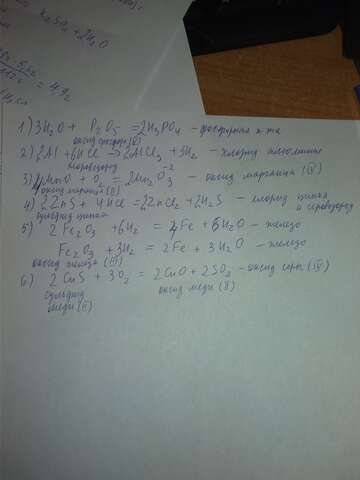 K₂SO₄ + 2H₂O
= 4,9г
1) 3H₂O + P₂O₅ = 2H₃PO₄ - фосфорная к-та
оксид фосфора (V)
2) 2Al + 6HCl → 2AlCl₃ + 3H₂ - хлорид алюминия
хлороводород
3) 4MnO + O₂ = 2Mn₂O₃ - оксид марганца
оксид марганца (II)
4) 2ZnS + 4HCl = 2ZnCl₂ + 2H₂S - хлорид цинка
и сероводород
сульфид цинка
5) 2Fe₂O₃ + 6H₂ = 4Fe + 6H₂O - железо
Fe₂O₃ + 3H₂ = 2Fe + 3H₂O - железо
оксид железа (III)
6) 2CuS + 3O₂ = 2CuO + 2SO₂ - оксид серы (IV)
сульфид
меди (II)
оксид меди (II)